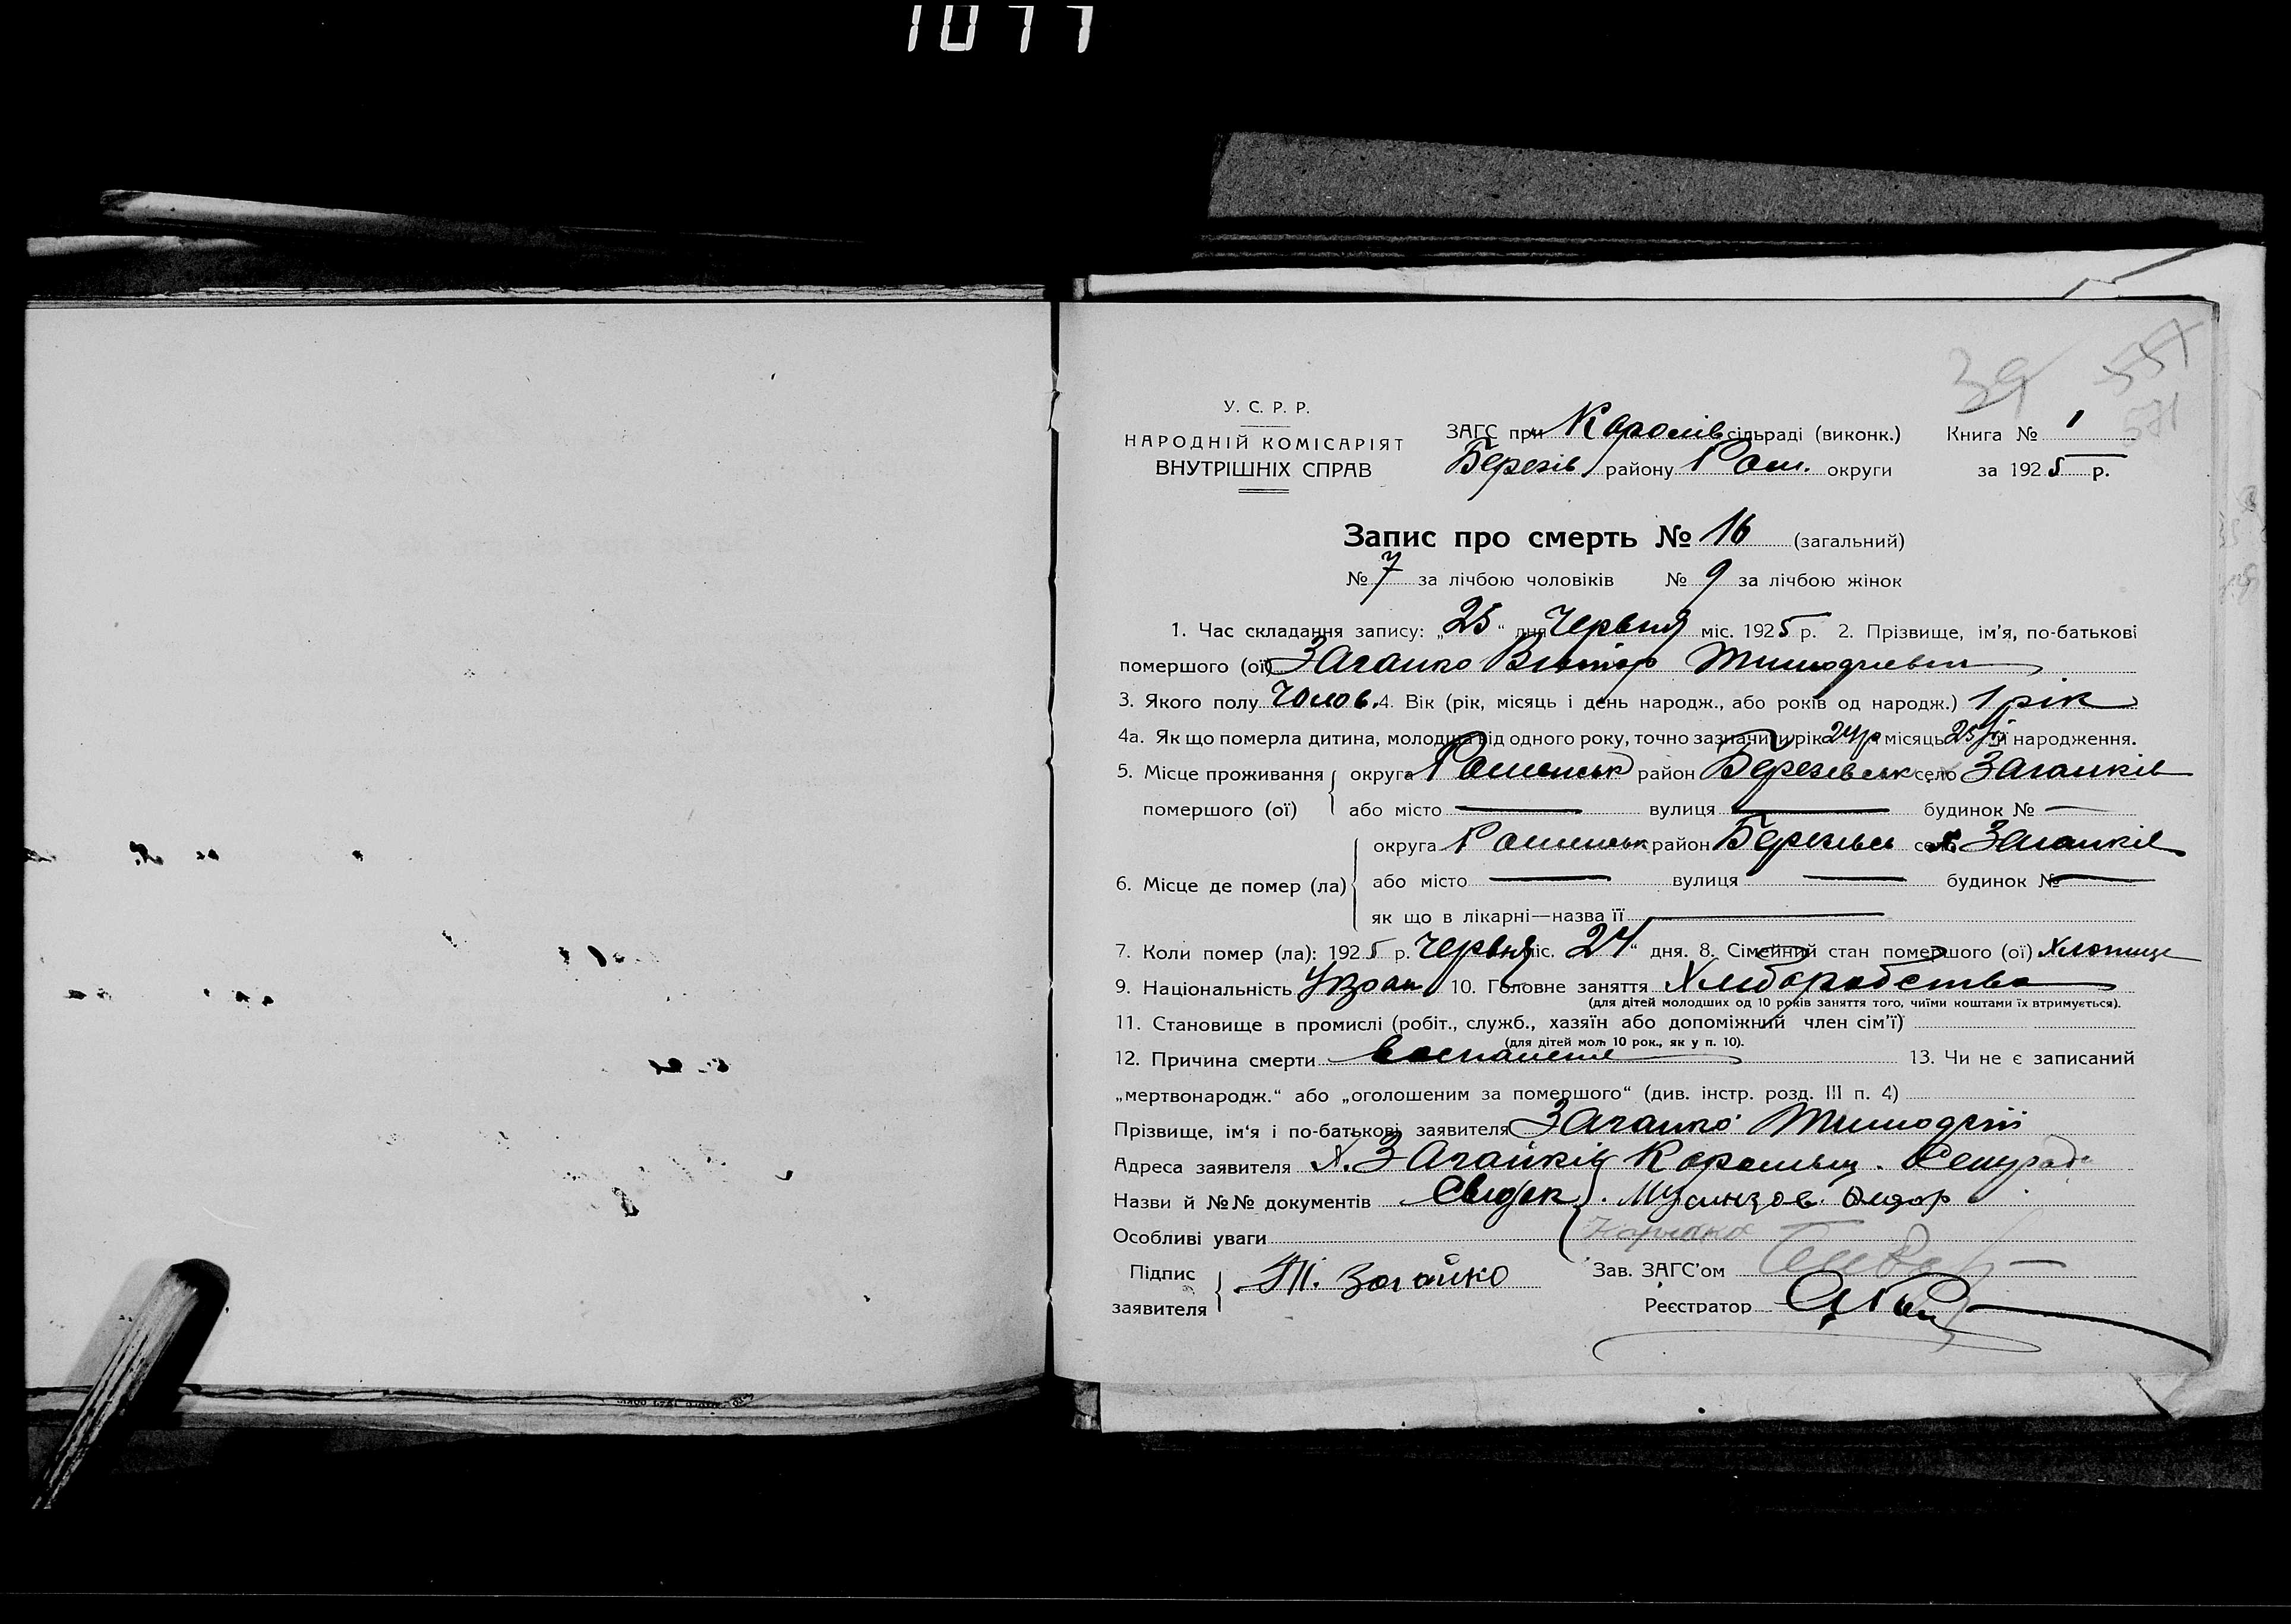 1077
39 557
571
У. С. Р. Р.
НАРОДНІЙ КОМІСАРІЯТ
ВНУТРІШНІХ СПРАВ
ЗАГС при Королів сільраді (виконк.) Книга № 1
Березів району Ром. округи за 1925 р.
Запис про смерть № 16 (загальний)
№ 7 за лічбою чоловіків № 9 за лічбою жінок
1. Час складання запису: „25“ дня Червня міс. 1925 р. 2. Прізвище, ім'я, по-батькові
помершого (ої) Загайко Віктор Тимофієвич
3. Якого полу Чолов. 4. Вік (рік, місяць і день народж., або років од народж.) 1 рік
4а. Як що померла дитина, молодша від одного року, точно зазначити рік 24р місяць 25 народження.
5. Місце проживання помершого (ої) округа Роменськ район Березівськ село Загайків
або місто — вулиця — будинок № —
6. Місце де помер (ла) округа Роменськ район Березівсь село х. Загайків
або місто — вулиця — будинок № —
як що в лікарні—назва її —
7. Коли помер (ла): 1925 р. Червня міс. 24“ дня. 8. Сімейний стан помершого (ої) Хлопище
9. Національність Украін 10. Головне заняття Хліборобство
(для дітей молодших од 10 років заняття того, чиїми коштами їх втримується).
11. Становище в промислі (робіт., служб., хазяїн або допоміжний член сім'ї)
(для дітей мол 10 рок., як у п. 10).
12. Причина смерти воспаление 13. Чи не є записаний
„мертвонародж.“ або „оголошеним за помершого“ (див. інстр. розд. III п. 4)
Прізвище, ім'я і по-батькові заявителя Загайко Тимофій
Адреса заявителя х. Загайків Корольвщ. Сельрада
Назви й №№ документів Свідок
Особливі уваги
Підпис заявителя Т. Загайко Зав. ЗАГС'ом
Реєстратор